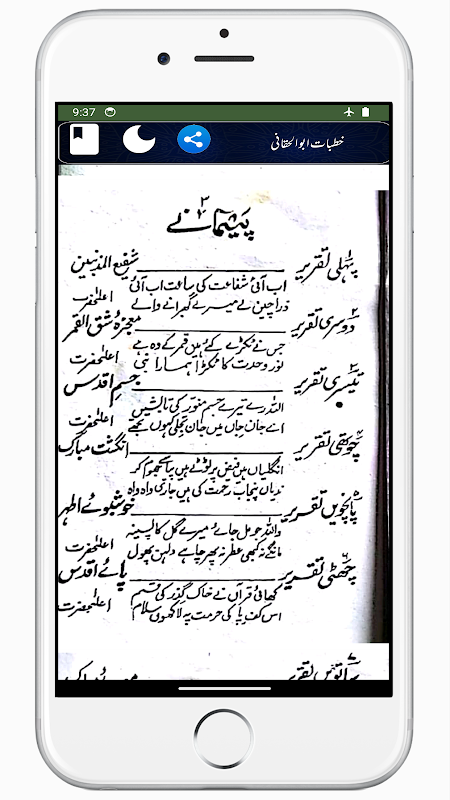 9:37
خطبات ابوالحقانی
۲
پیمانے
پہلی تقریر شفیع المذنبین
اب آئی شفاعت کی ساعت اب آئی
ذرا چین لے میرے گھبرانے والے
اعلیٰحضرت
دوسری تقریر معجزہ شق القمر
جس نے ٹکڑے کئے ہیں قمر کے وہ ہے
نور وحدت کا ٹکڑا ہمارا نبی
اعلیٰحضرت
تیسری تقریر جسم اقدس
اللہ رے تیرے جسم منور کی تابشیں
اے جان جاں میں جان تجلی کہوں تجھے
اعلیٰحضرت
چوتھی تقریر انگشت مبارک
انگلیاں ہیں فیض پر ٹوٹے ہیں پیاسے جھوم کر
ندیاں پنجاب رحمت کی ہیں جاری واہ واہ
پانچویں تقریر خوشبوئے اطہر
واللہ جو مل جائے میرے گل کا پسینہ
مانگے نہ کبھی عطر نہ پھر چاہے دلہن پھول
اعلیٰحضرت
چھٹی تقریر پائے اقدس
کھائی قرآں نے خاک گذر کی قسم
اس کف پا کی حرمت پہ لاکھوں سلام
اعلیٰحضرت
ساتویں تقریر